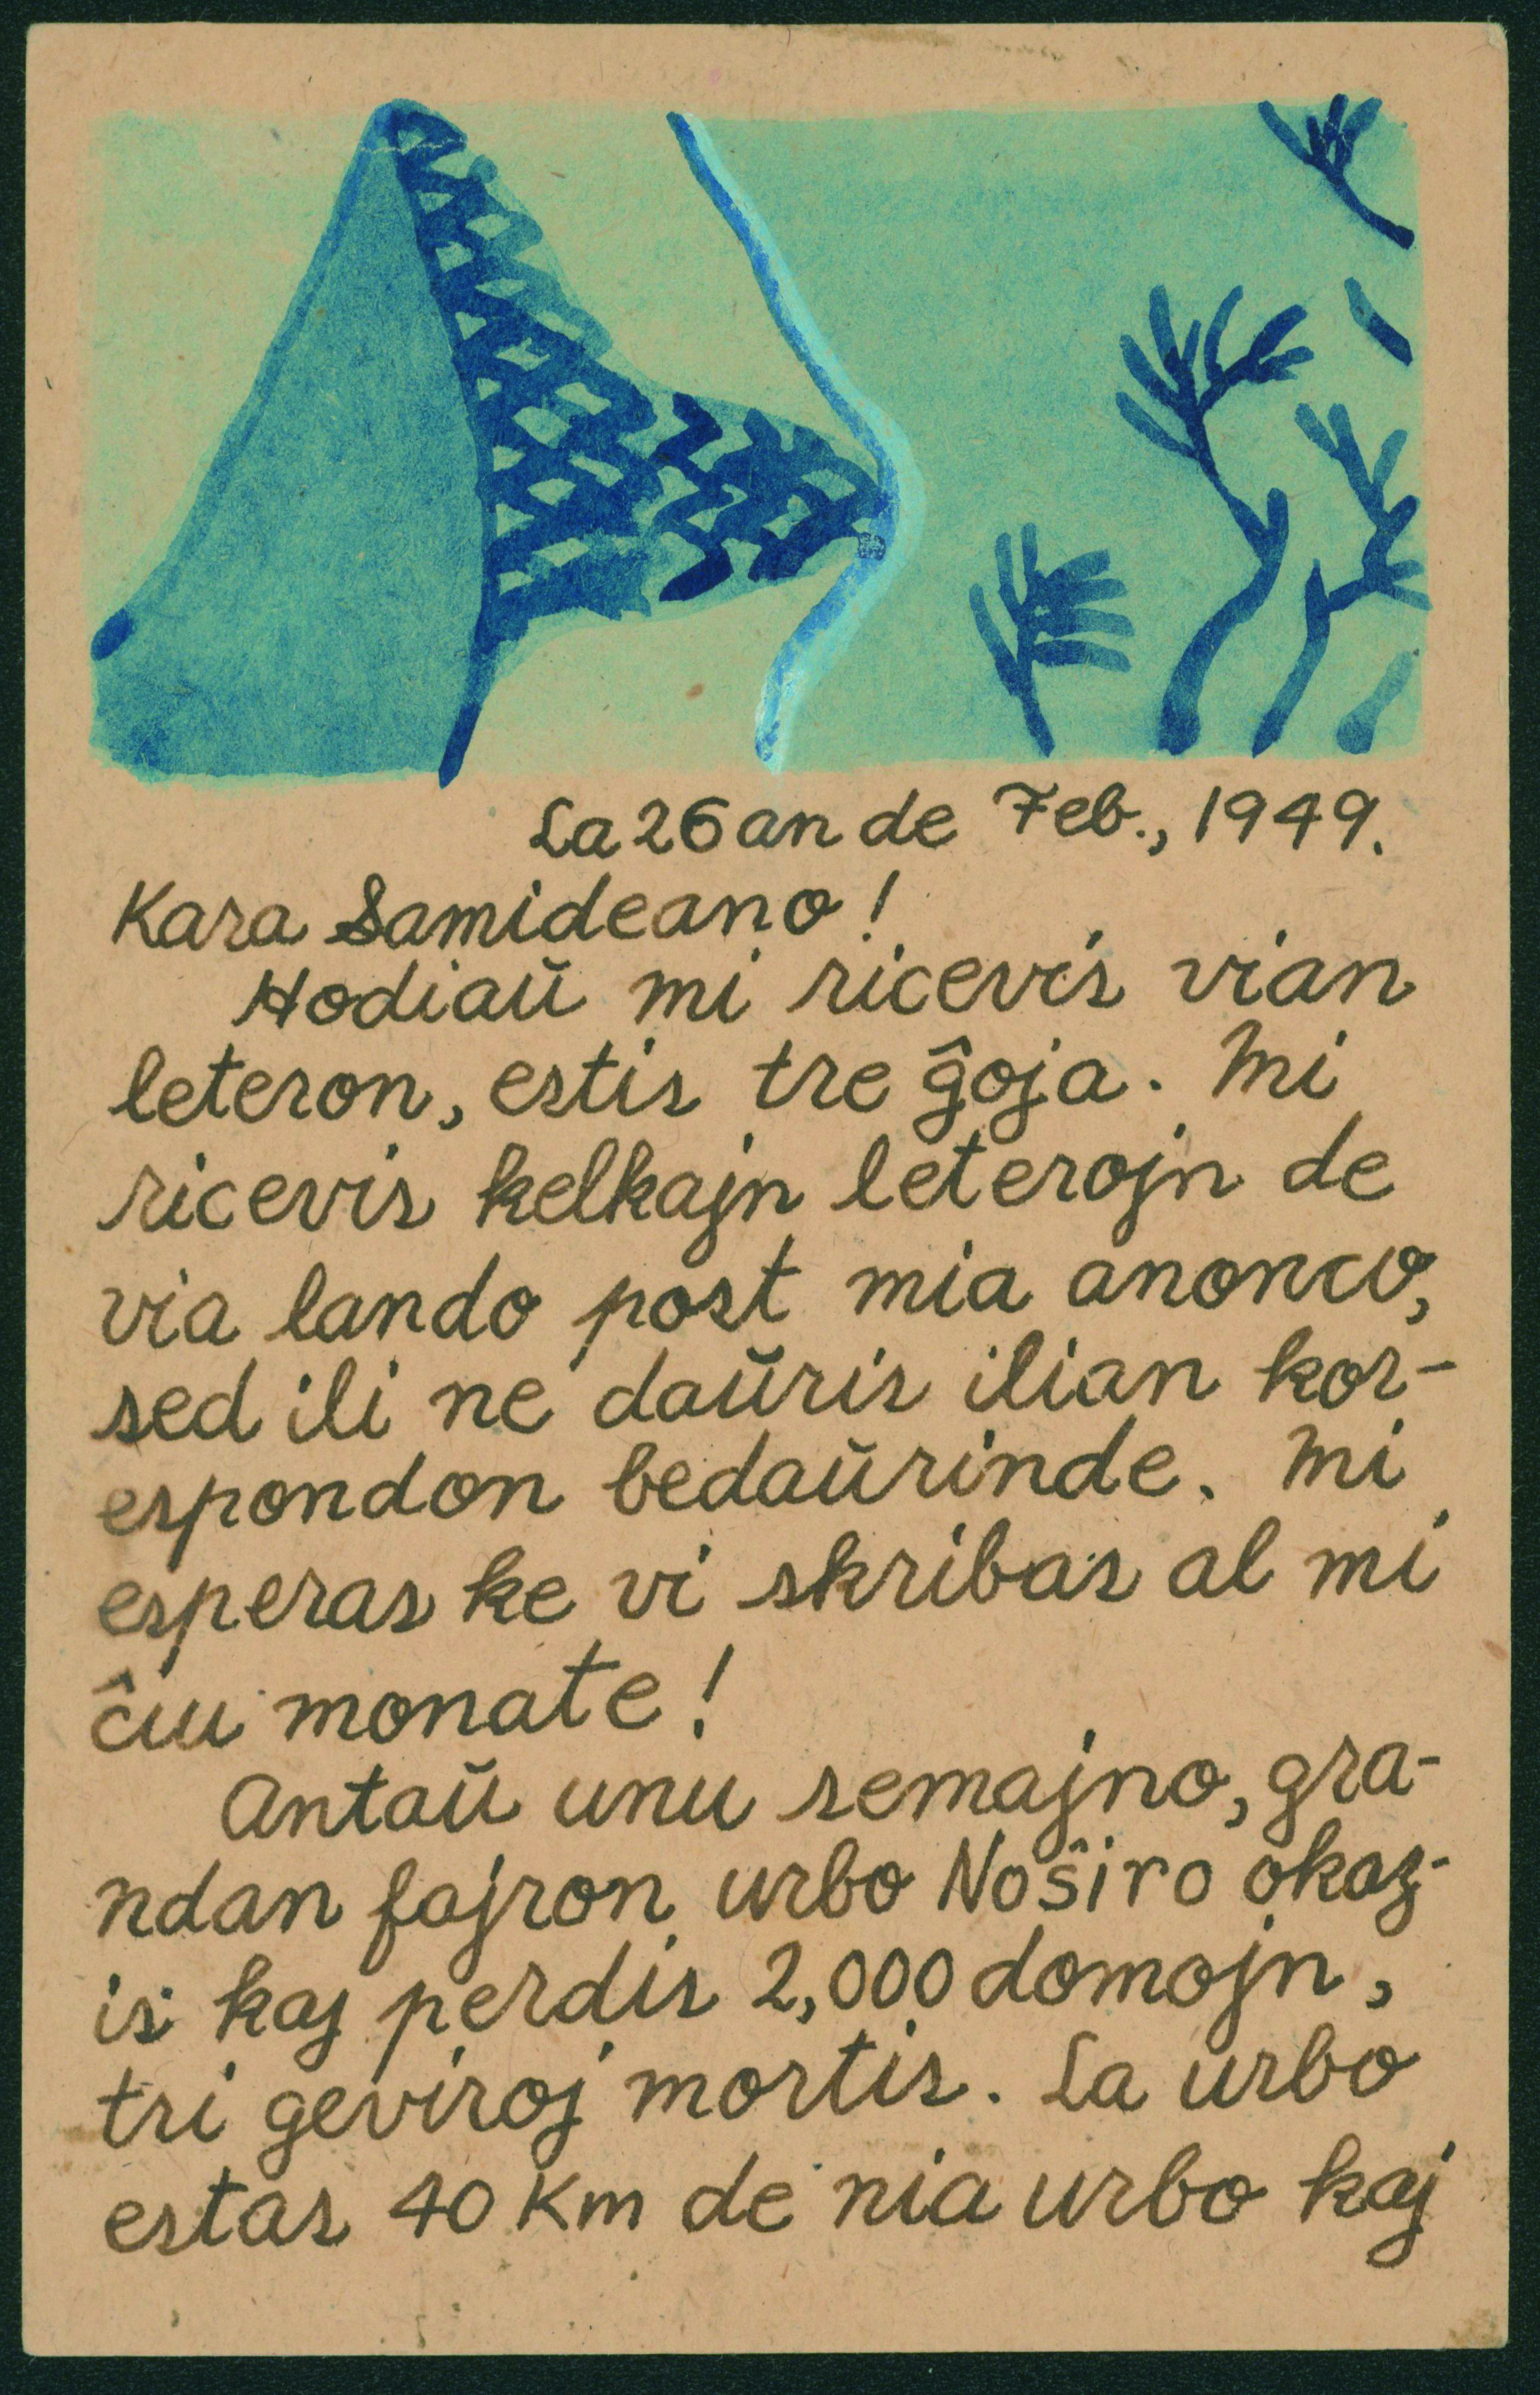 La 26an de Feb., 1949.
Kara Samideano!
Hodiaŭ mi ricevis vian
leteron, estis tre ĝoja. Mi
ricevis kelkajn leterojn de
via lando post mia anonco,
sed ili ne daŭris ilian kor-
espondon bedaŭrinde. Mi
esperas ke vi skribas al mi
ĉiu monate!
Antaŭ unu semajno, gra-
ndan fajron urbo Noŝiro okaz-
is kaj perdis 2,000 domojn,
tri geviroj mortis. La urbo
estas 40 Km de nia urbo kaj